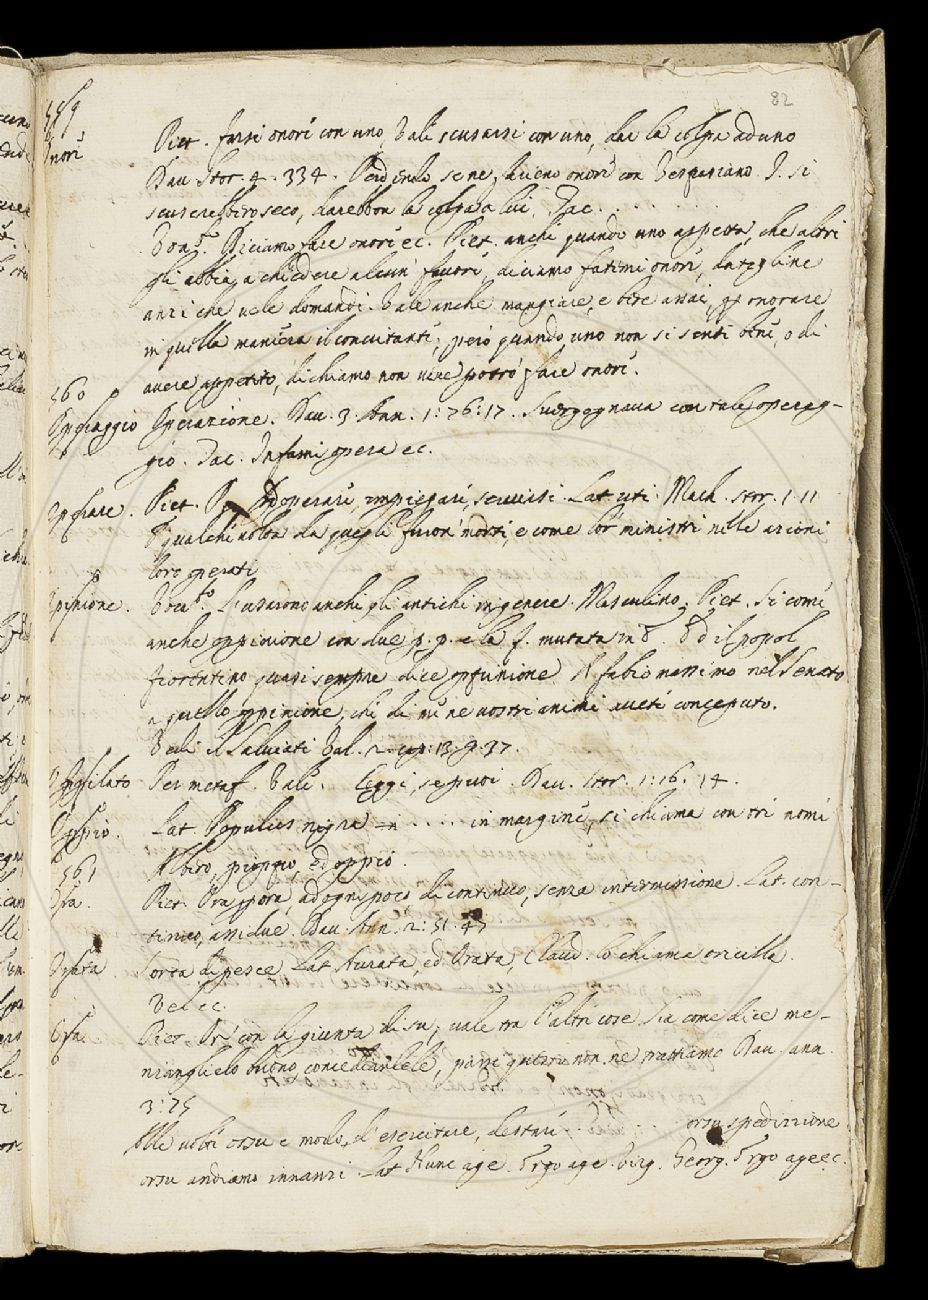 82
559
Onori Piet. farsi onori con uno, Vale scusarsi con uno, dar la colpa ad uno
Dav. Stor. 4. 334. Perdendo se ne, diveno onori con Vespasiano. I. si
scuserebbero seco, darebbon la colpa a lui. Tac. . . . . . . .
Diciamo fare onori ec. Piet. anchi quando uno aspetta, che altri
gli abbia, a chiedere alcun favori, diciamo fatimi onori, dategline
anzi che vele domandi. Vale anche mangiare, e bere assai, per onorare
in quella maniera il convitanti; però quando uno non si senti beni, o di
avere appetito, dichiamo non vene potrò fare onori.
560
Operaggio Operazione. Dav. 3. Ann. 1: 76: 17. Svergognava con tale operag-
gio. Tac. Infami opera ec.
Operare. Piet. P. Adoperari, impiegari, servirsi. Lat. uti. Mach. stor. 1. 11
E qualchi volta da quegli furon morti, e come lor ministri nelle azioni
loro operati
Opinione. L'usarono anchi gli antichi in genere Masculino. Piet. Si comi
anche oppinione con due p. p. e la
fiorentino quasi sempre dice opfinione. Fabio massimo nel Senato
a quello oppinione, chi di mi ne vostri animi aveti conceputo.
Vedi il Salviati Val. 2. cap: 13. 9. 37.
Oppilato Per metaf. Vali. Leggi, se puoi. Dav. Stor. 1: 16. 14.
Oppio. Lat. Populus nigra . . . . . in margini, si chiama con tri nomi
Albero, pioppo, ed oppio.
561
Ora. Piet. Ora per ora, ad ogni poco di continuo, senza intermissione. Lat. con-
tinuo, assidue. Dav. Ann. 2: 51. 47
Orata sorta di pesce Lat. Aurata, ed Orata, Claud. lo chiama
Vel ec
Orsu. Piet. Or' con la giunta di su, vale tra l'altri cose Sia come dice me-
niamglielo buono, concediamlele, passi questa non ne trattiamo Dav. Ann.
3: 25
Alle volti orsu e modo d'esercitare, destari . . . . orsu spedizzione
orsu andiamo innanzi. Lat. Nunc age. Ergo age. Virg. Georg. Ergo age ec.